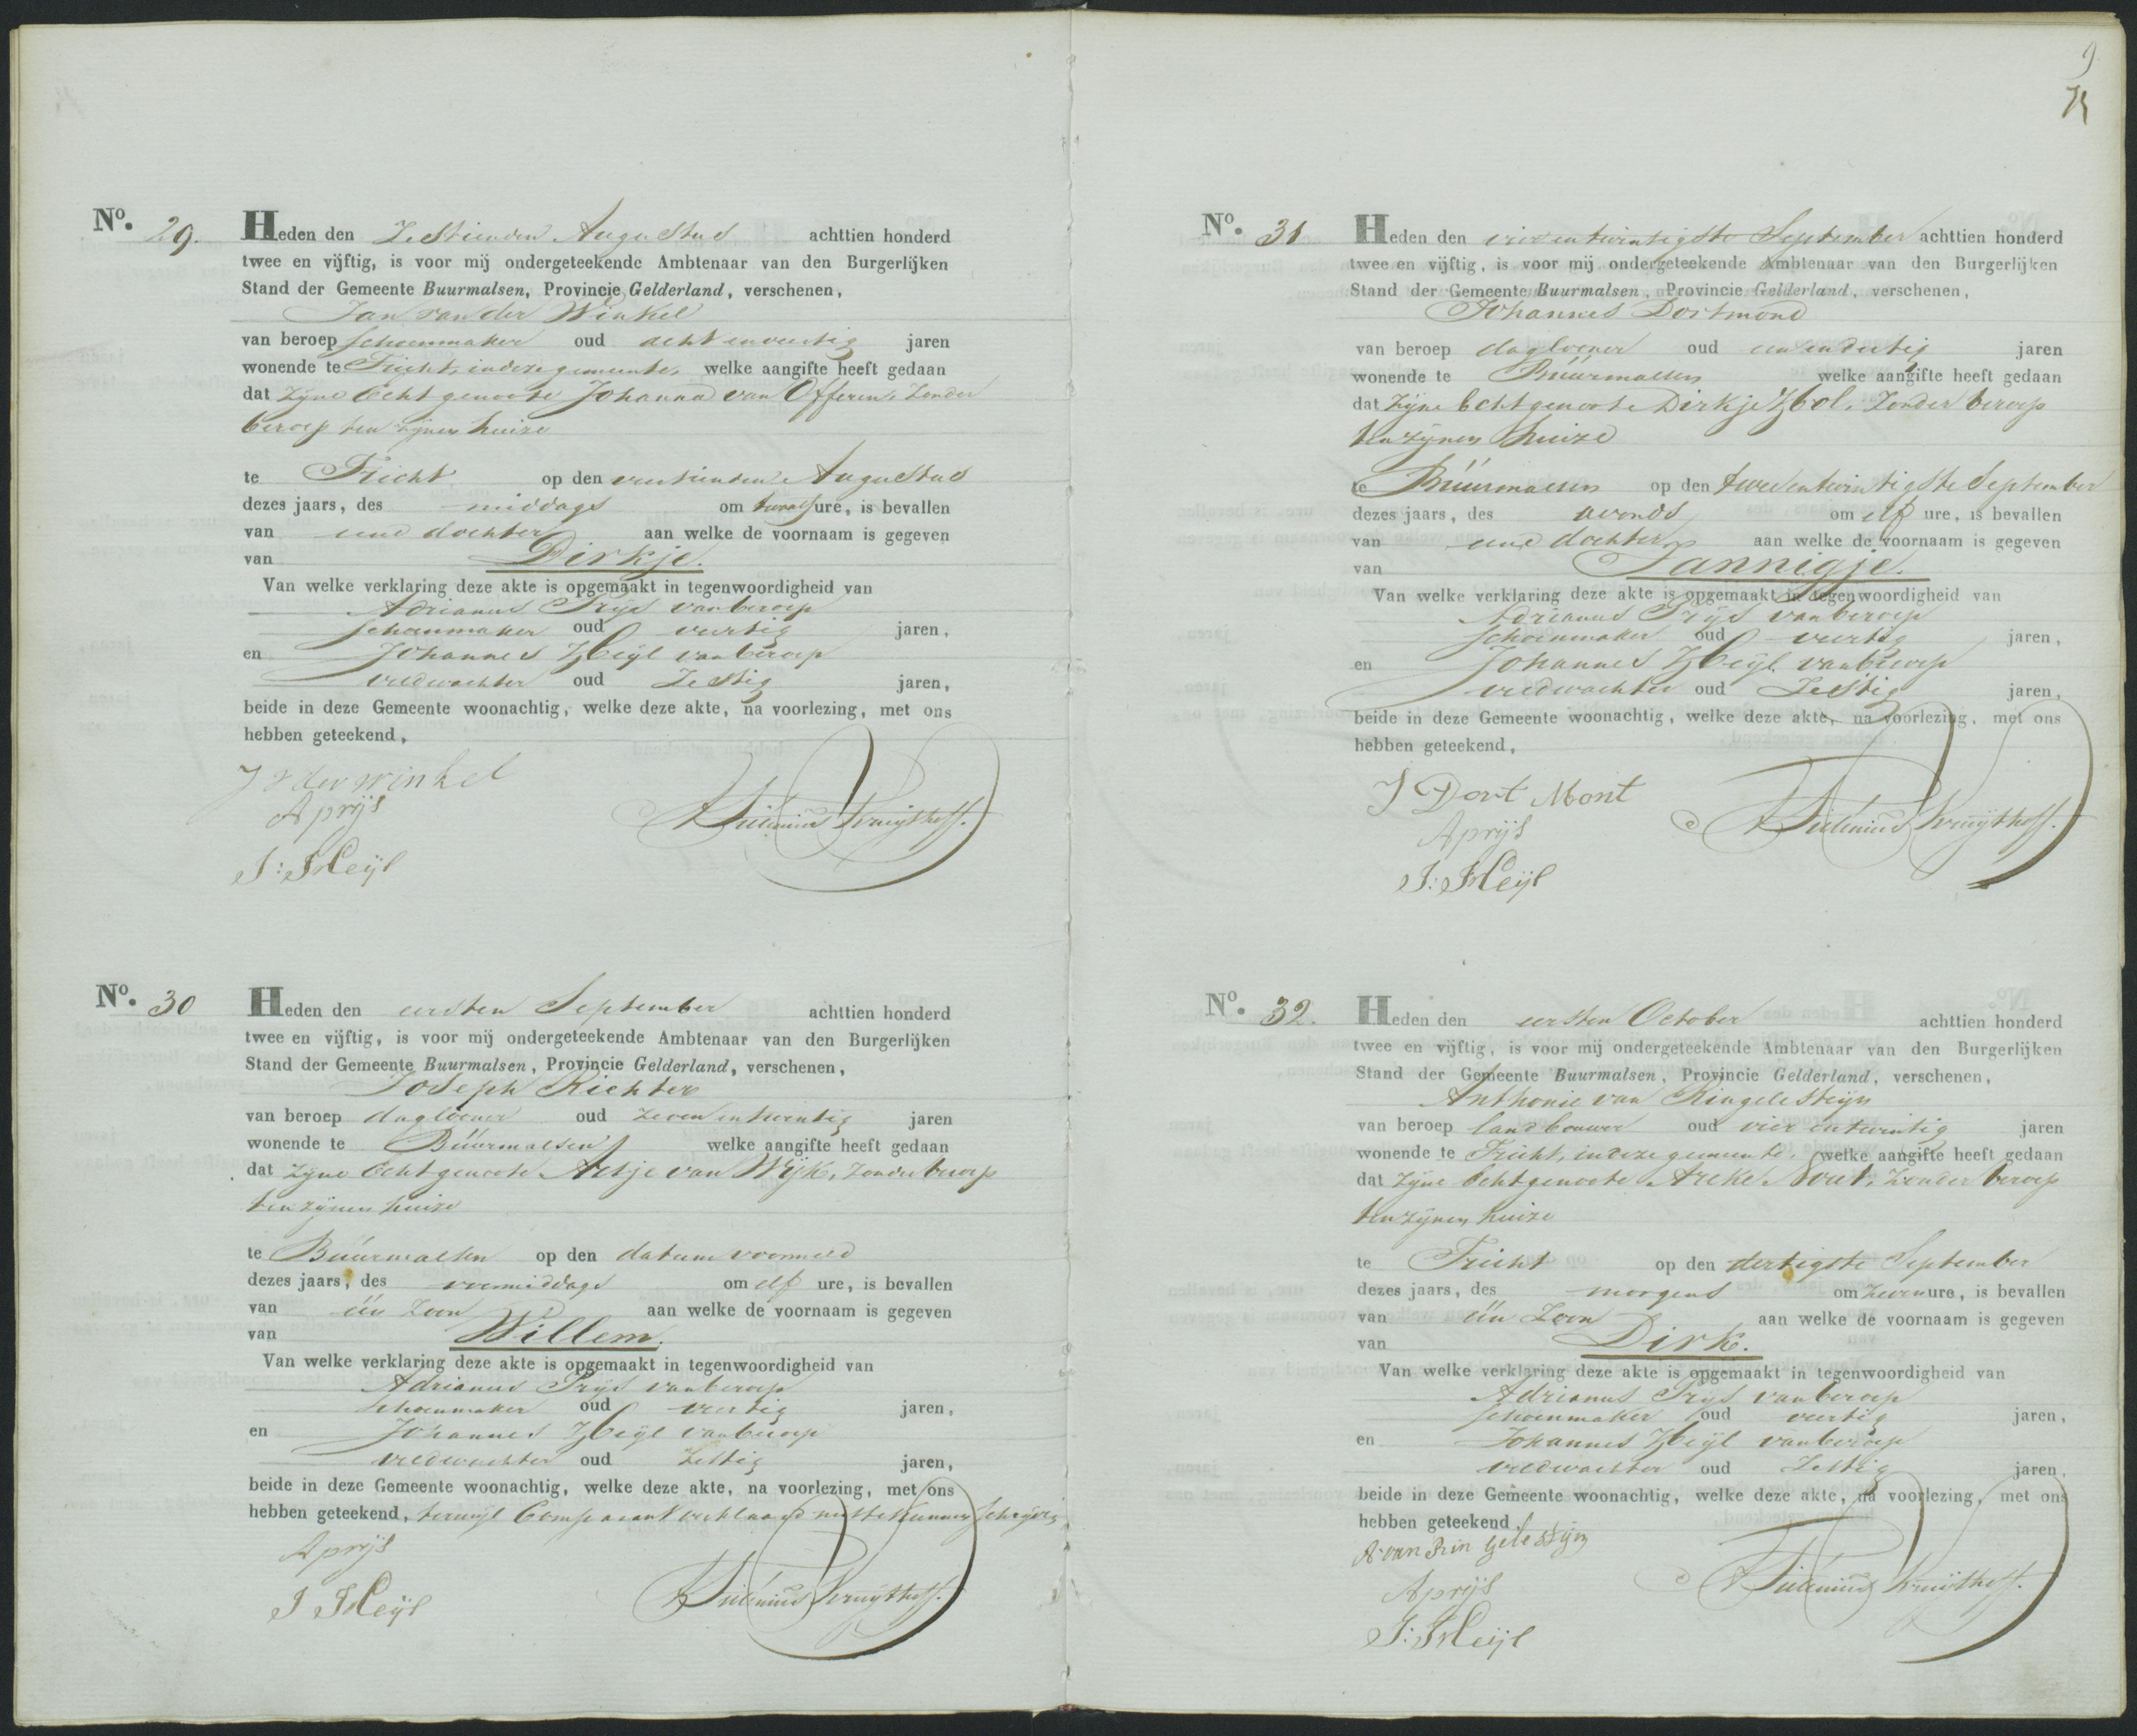 No. 29. Heden den Zestienden Augustus achttien honderd
twee en vijftig, is voor mij ondergeteekende Ambtenaar van den Burgerlijken
Stand der Gemeente Buurmalsen, Provincie Gelderland, verschenen,
Jan van der Winkel
van beroep schoenmaker oud acht en veertig jaren
wonende te Tricht, in deze gemeente, welke aangifte heeft gedaan
dat zijne Echtgenoote Johanna van Offeren, zonder
beroep ten zijnen huize
te Tricht op den veertienden Augustus
dezes jaars, des middags om twaalf ure, is bevallen
van eene dochter aan welke de voornaam is gegeven
van Dirkje.
Van welke verklaring deze akte is opgemaakt in tegenwoordigheid van
Adrianus Prijs van beroep
schoenmaker oud veertig jaren,
en Johannes Heijl van beroep
veldwachter oud Zestig jaren,
beide in deze Gemeente woonachtig, welke deze akte, na voorlezing, met ons
hebben geteekend,
J v der winkel
A prijs
J: Heijl
Kruijthoff.
No. 30 Heden den eersten September achttien honderd
twee en vijftig, is voor mij ondergeteekende Ambtenaar van den Burgerlijken
Stand der Gemeente Buurmalsen, Provincie Gelderland, verschenen,
Joseph Richter
van beroep daglooner oud zeven en twintig jaren
wonende te Buurmalsen welke aangifte heeft gedaan
dat zijne Echtgenoote Aetje van Wijk, zonder beroep
ten zijnen huize
te Buurmalsen op den datum voormeld
dezes jaars, des voormiddags om elf ure, is bevallen
van één Zoon aan welke de voornaam is gegeven
van Willem.
Van welke verklaring deze akte is opgemaakt in tegenwoordigheid van
Adrianus Prijs van beroep
schoenmaker oud veertig jaren,
en Johannes Heijl van beroep
veldwachter oud Zestig jaren,
beide in deze Gemeente woonachtig, welke deze akte, na voorlezing, met ons
hebben geteekend, terwijl Comparant verklaard niet te kunnen schrijven
A prijs
J Heijl
Kruijthoff.
9
No. 31 Heden den vierentwintigste September achttien honderd
twee en vijftig, is voor mij ondergeteekende Ambtenaar van den Burgerlijken
Stand der Gemeente Buurmalsen, Provincie Gelderland, verschenen,
Johannes Dortmond
van beroep daglooner oud een en dertig jaren
wonende te Buurmalsen welke aangifte heeft gedaan
dat zijne Echtgenoote Dirkje Hol, zonder beroep
ten zijnen huize
te Buurmalsen op den tweeentwintigste September
dezes jaars, des avonds om elf ure, is bevallen
van eene dochter aan welke de voornaam is gegeven
van Jannigje.
Van welke verklaring deze akte is opgemaakt in tegenwoordigheid van
Adrianus Prijs van beroep
schoenmaker oud veertig jaren,
en Johannes Heijl van beroep
veldwachter oud Zestig jaren,
beide in deze Gemeente woonachtig, welke deze akte, na voorlezing, met ons
hebben geteekend,
J Dort Mont
A prijs
J: Heijl
Kruijthoff.
No. 32. Heden den eersten October achttien honderd
twee en vijftig, is voor mij ondergeteekende Ambtenaar van den Burgerlijken
Stand der Gemeente Buurmalsen, Provincie Gelderland, verschenen,
Anthonie van Ringelesteijn
van beroep landbouwer oud vier en twintig jaren
wonende te Tricht, in deze gemeente, welke aangifte heeft gedaan
dat zijne Echtgenoote zonder beroep
ten zijnen huize
te Tricht op den dertigste September
dezes jaars, des morgens om zeven ure, is bevallen
van één Zoon aan welke de voornaam is gegeven
van Dirk.
Van welke verklaring deze akte is opgemaakt in tegenwoordigheid van
Adrianus Prijs van beroep
schoenmaker oud veertig jaren,
en Johannes Heijl van beroep
veldwachter oud Zestig jaren,
beide in deze Gemeente woonachtig, welke deze akte, na voorlezing, met ons
hebben geteekend.
A: van Rin gele stijn
A prijs
J: Heijl
Kruijthoff.